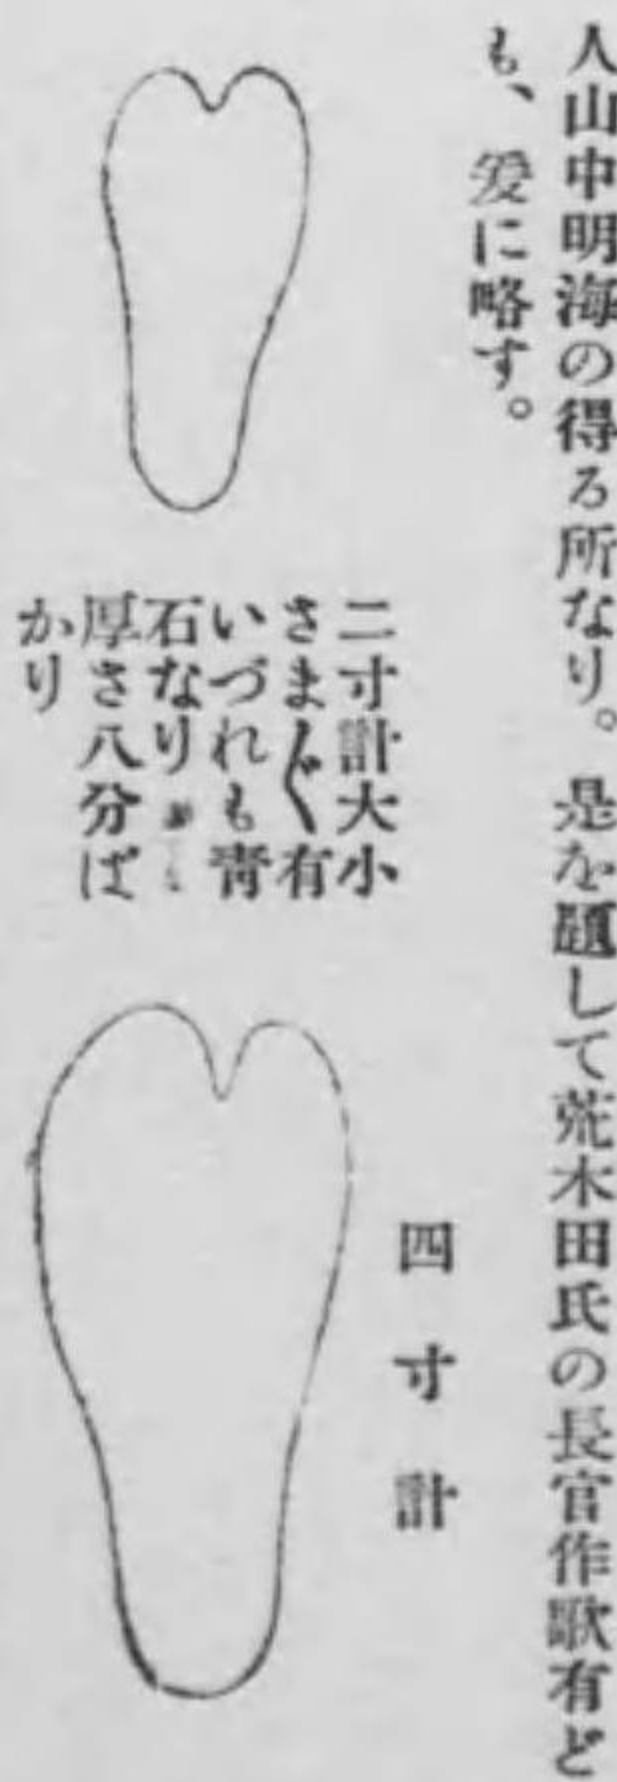 人山中明海の得る所なり。是を題して荒木田氏の長官作歌有ど
も、爰に略す。
二寸計大小
さま〴〵有
いづれも青
石なり
厚さ八分ば
かり
四寸計